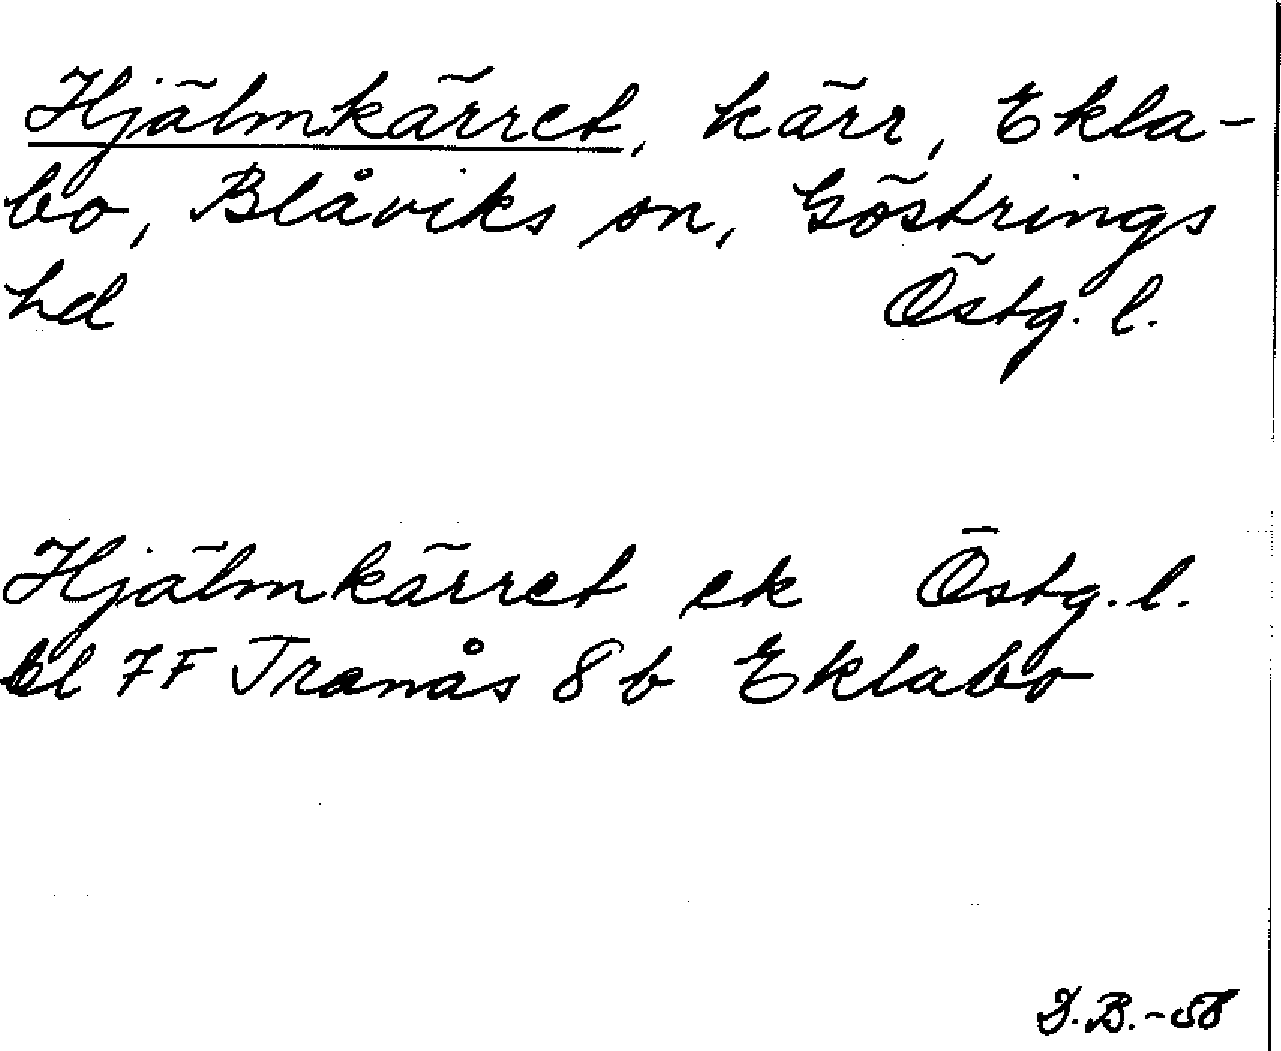 Hjälmkärret, kärr, Ekla-
bo, Blåviks sn, Göstrings
hd Östg. l.
Hjälmkärret ek Östg. l.
bl 7F Tranås 8 b Eklabo
D.B.-58